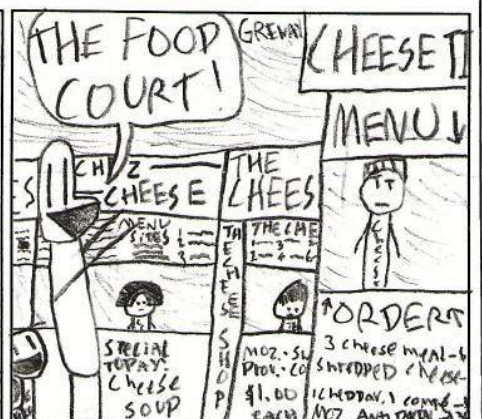 THE FOOD
COURT!
GREWAY
CHEESE II
MENU ↓
CHEZ
CHEESE
MENU
SITES
1
2
3
THE
CHEES
THE CHEESE SHOP
THE CHE
1 3
2 4
TT
Cheese
SPECIAL
TODAY:
Cheese
SOUP
MOZ. - SW
PROV. - CO
$1.00
EACH
↑ORDER↑
3 cheese meal-
SHREDDED cheese-
1 CHEDDAR, 1
MOZ AND